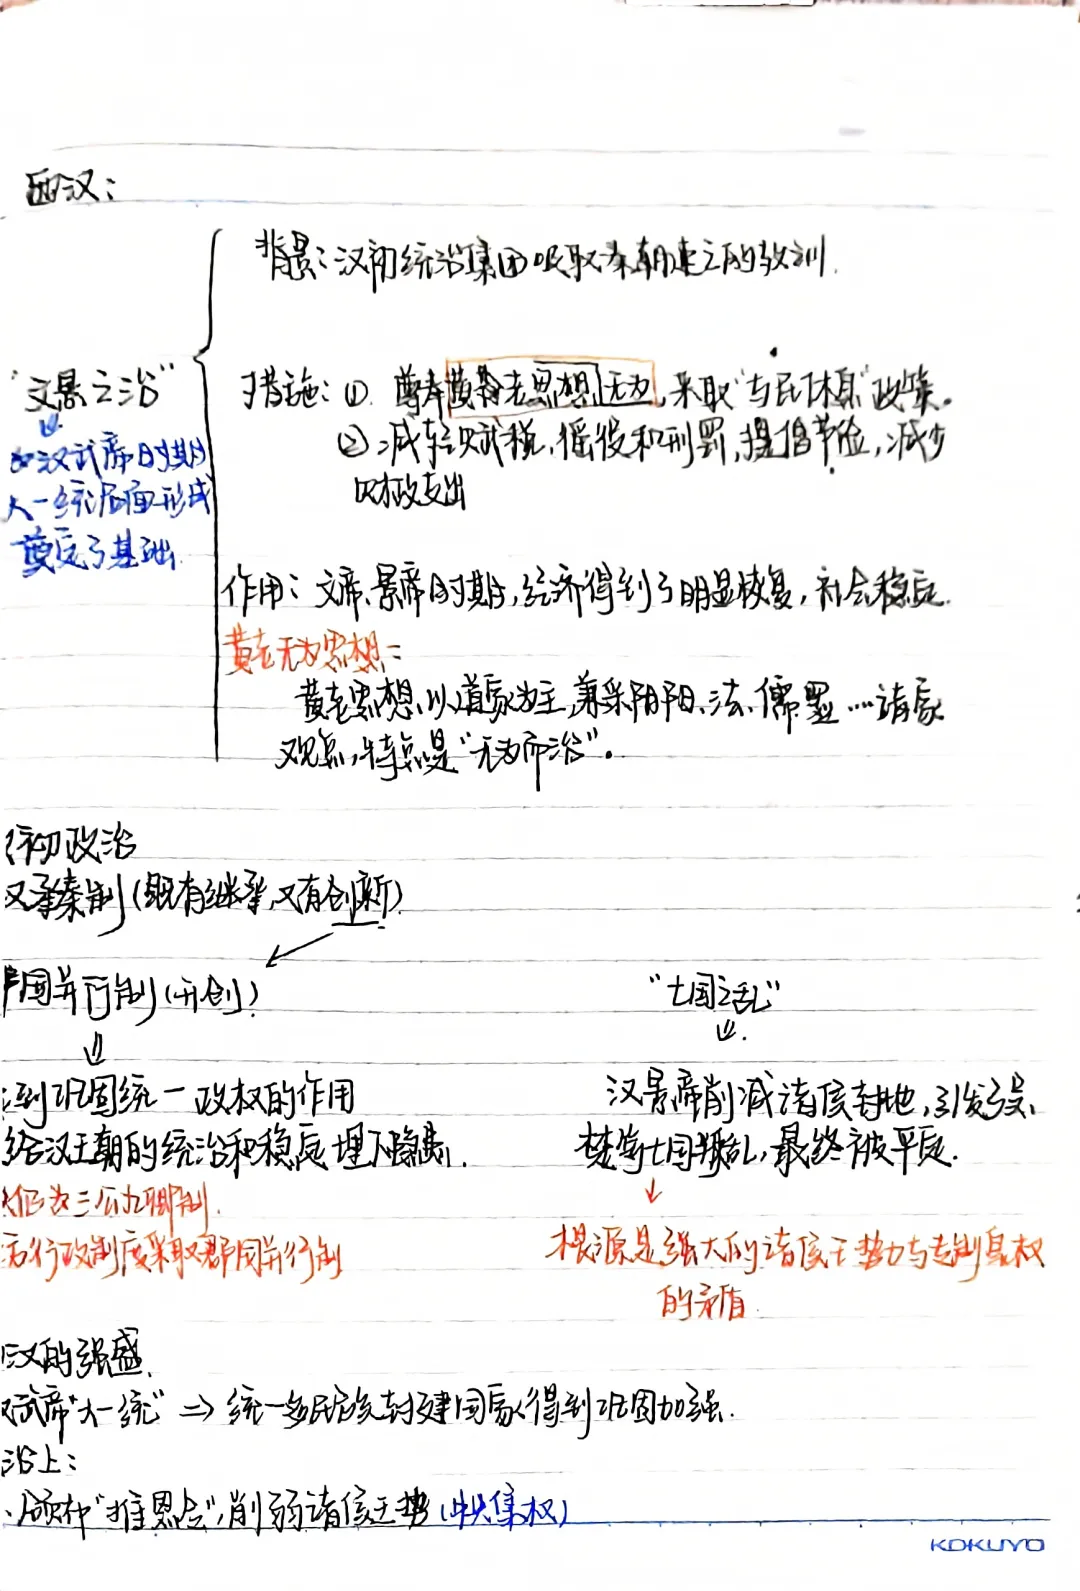 西汉：
背景：汉初统治集团吸取秦朝速亡的教训.
“文景之治”
措施：① 尊奉黄老思想无为,采取“与民休息”政策。
②减轻赋税,徭役和刑罚,提倡节俭,减少
财政支出
为汉武帝时期
大一统局面形成
奠定了基础.
作用：文帝、景帝时期,经济得到了明显恢复,社会稳定.
黄老无为思想：
黄老思想以道家为主,兼采阴阳、法、儒、墨…诸家
观点,特点是“无为而治”。
初政治
汉承秦制(既有继承,又有创新).
国并行制(开创)
“七国之乱”
到巩固统一政权的作用
给汉王朝的统治和稳定埋下隐患.
汉景帝削减诸侯封地,引发吴、
楚等七国叛乱,最终被平定.
为三公九卿制.
方行政制度采取郡国并行制
根源是强大的诸侯王势力与专制皇权
的矛盾.
汉的强盛.
武帝“大一统” ⇒ 统一多民族封建国家得到巩固加强.
治上：
颁布“推恩令”,削弱诸侯王势(中央集权)
KOKUYO